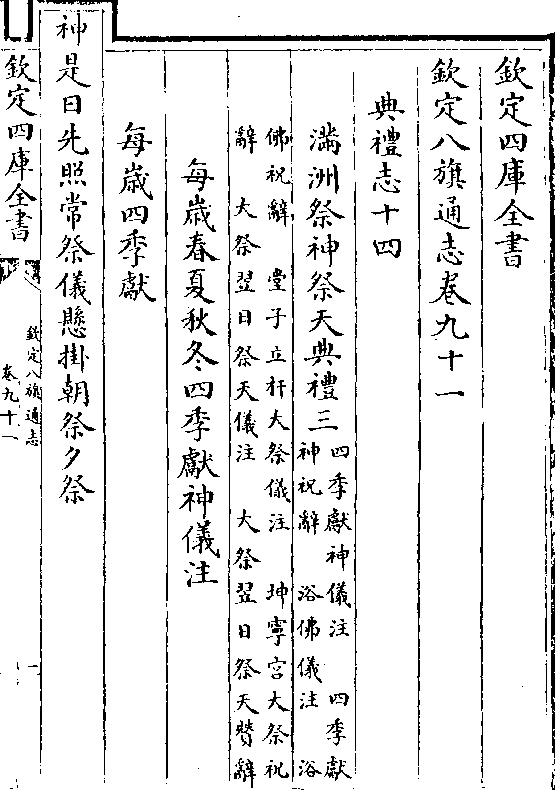 欽定四庫全書
欽定八旗通志卷九十一
典禮志十四
滿洲祭神祭天典禮三
四季獻神儀注 四季獻
神祝辭 浴佛儀注 浴
佛祝辭 堂子立杆大祭儀注 坤寧宮大祭祝
辭 大祭翌日祭天儀注 大祭翌日祭天贊辭
每歲春夏秋冬四季獻神儀注
每歲四季獻
神是日先照常祭儀懸掛朝祭夕祭
欽定四庫全書
欽定八旗通志
卷九十一
一